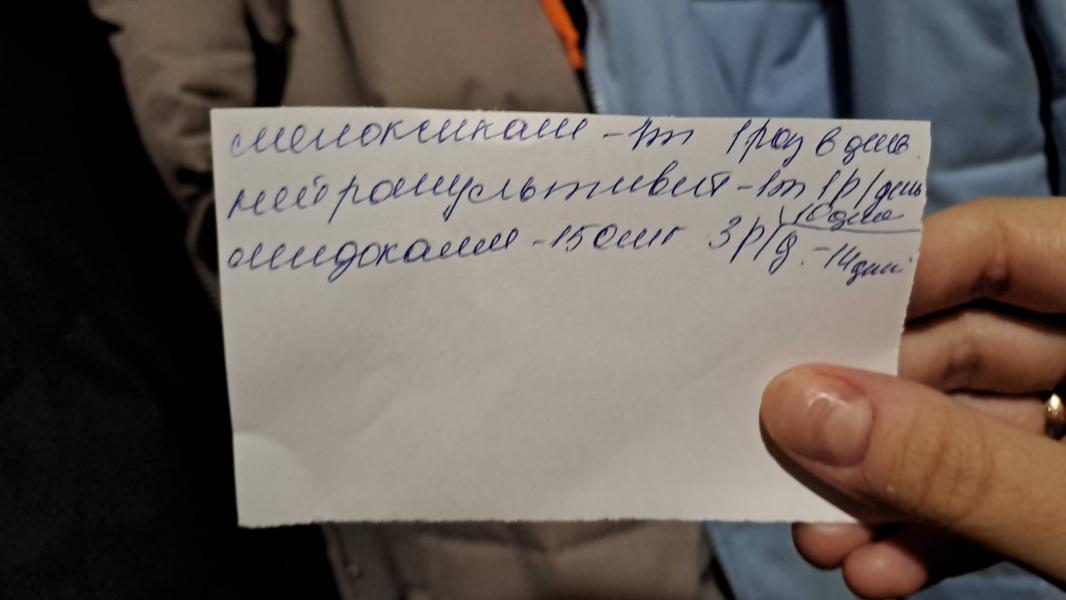 мелоксикам - 1т 1 раз в день.
нейромультивит - 1т 1р/день
10 дней
мидокалм - 150мг 3р/д. - 14 дней